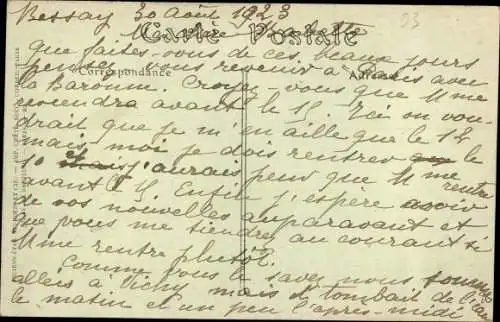 Bessay 30 août 1923
Ma chère
Carte Postale
que faites-vous de ces beaux jours
pensez vous revenir à Paris avec
Correspondance
la Baronne. Croyez-vous que Mme
reviendra avant le 15. Ici on vou-
drait que je m'en aille que le 12
mais moi je dois rentrer le
10 j'aurais peur que Mme rentre
avant le 15. Enfin j'espère avoir
de vos nouvelles auparavant et
que vous me tiendrez au courant si
Mme rentre plutôt.
Comme vous le savez nous sommes
allés à Vichy mais il tombait de l'eau
le matin et un peu l'après-midi